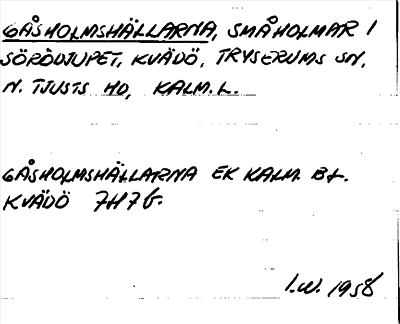 GÅSHOLMSHÄLLARNA, SMÅHOLMAR I
SÖRÖDJUPET, KVÄDÖ, TRYSERUMS SN,
N. TJUSTS HD, KALM. L.
GÅSHOLMSHÄLLARNA EK KALM. BL.
KVÄDÖ 7H7b.
I.W. 1958